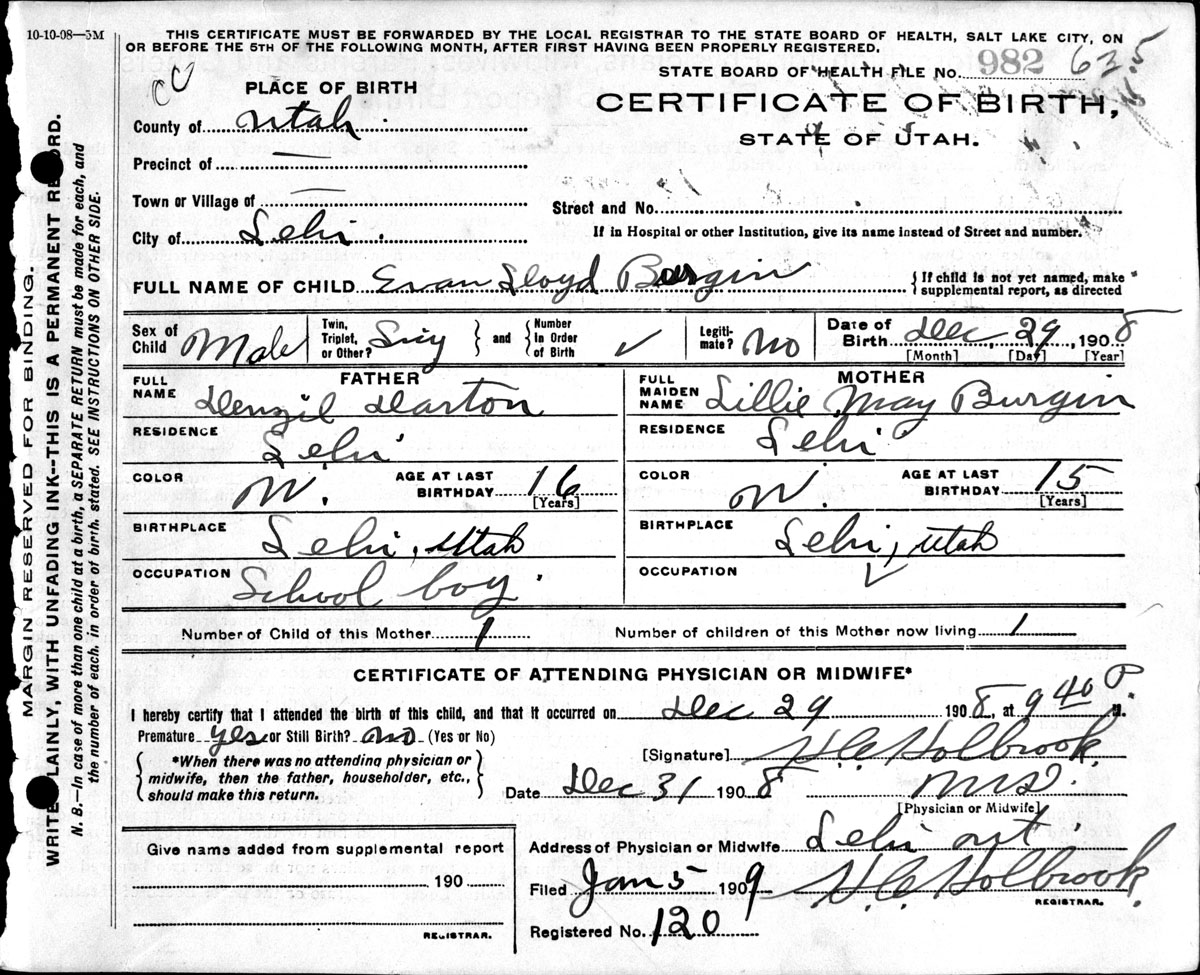 10-10-08—5M
THIS CERTIFICATE MUST BE FORWARDED BY THE LOCAL REGISTRAR TO THE STATE BOARD OF HEALTH, SALT LAKE CITY, ON
OR BEFORE THE 5TH OF THE FOLLOWING MONTH, AFTER FIRST HAVING BEEN PROPERLY REGISTERED.
STATE BOARD OF HEALTH FILE NO. 982 635
PLACE OF BIRTH
CERTIFICATE OF BIRTH,
STATE OF UTAH.
County of Utah
Precinct of —
Town or Village of —
Street and No.
City of Lehi.
If in Hospital or other Institution, give its name instead of Street and number.
FULL NAME OF CHILD Evan Lloyd Burgin
{If child is not yet named, make
supplemental report, as directed
Sex of Child Male
Twin, Triplet, or Other? Sig
and
Number In Order of Birth ✓
Legiti-mate? No
Date of Birth Dec. 29, 1908
[Month] [Day] [Year]
FATHER
FULL NAME Denzil Darton
MOTHER
FULL MAIDEN NAME Lillie May Burgin
RESIDENCE Lehi
RESIDENCE Lehi
COLOR W. AGE AT LAST BIRTHDAY 16 [Years]
COLOR W. AGE AT LAST BIRTHDAY 15 [Years]
BIRTHPLACE Lehi, Utah
BIRTHPLACE Lehi, Utah
OCCUPATION School boy.
OCCUPATION ✓
Number of Child of this Mother 1
Number of children of this Mother now living 1
CERTIFICATE OF ATTENDING PHYSICIAN OR MIDWIFE*
I hereby certify that I attended the birth of this child, and that it occurred on Dec 29 1908, at 9 40 P. M.
Premature yes or Still Birth? no (Yes or No)
*When there was no attending physician or
midwife, then the father, householder, etc.,
should make this return.
[Signature] H.C. Holbrook
Date Dec 31 1908 M.D.
[Physician or Midwife]
Give name added from supplemental report
190
REGISTRAR.
Address of Physician or Midwife Lehi ut.
Filed Jan 5 1909 H.C. Holbrook.
REGISTRAR.
Registered No. 120
MARGIN RESERVED FOR BINDING.
WRITE PLAINLY, WITH UNFADING INK--THIS IS A PERMANENT RECORD.
N. B.—In case of more than one child at a birth, a SEPARATE RETURN must be made for each, and
the number of each, in order of birth, stated. SEE INSTRUCTIONS ON OTHER SIDE.